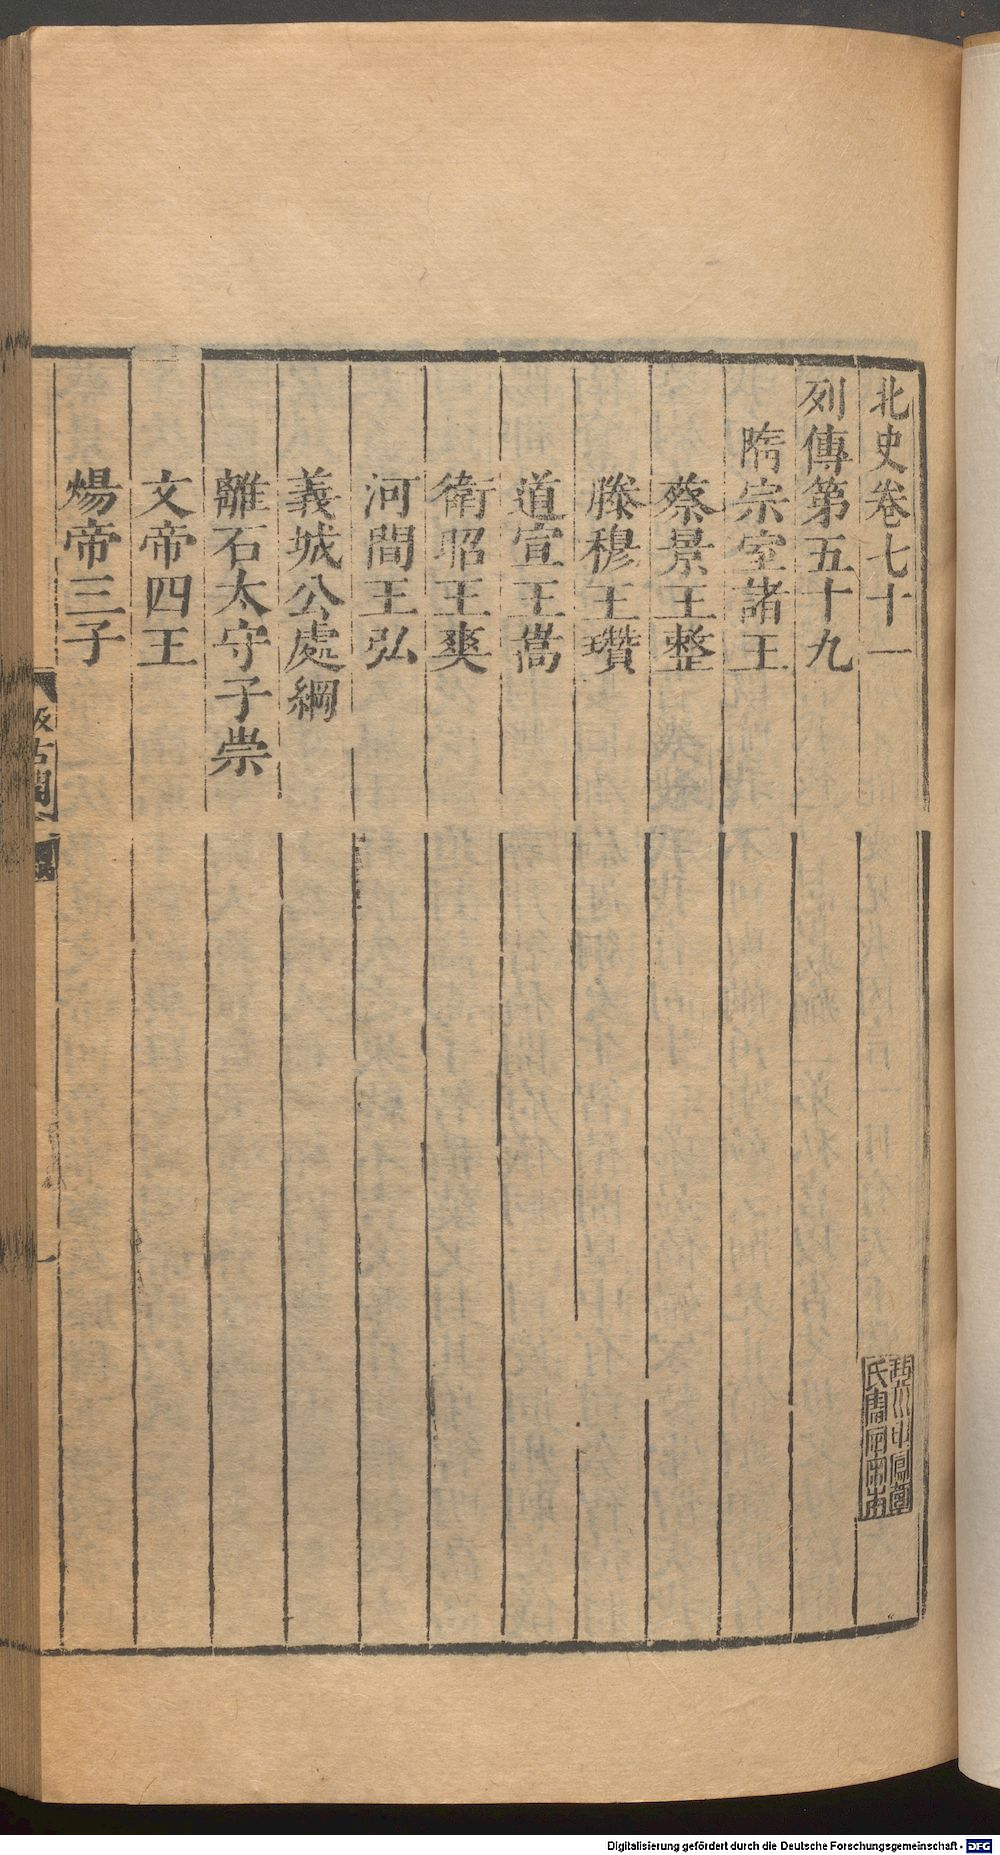 北史卷七十一
列傳第五十九
隋宗室諸王
蔡景王整
滕穆王瓚
道宣王嵩
衛昭王爽
河間王弘
義城公處綱
離石太守子崇
文帝四王
煬帝三子
汲古閣
Digitalisierung gefördert durch die Deutsche Forschungsgemeinschaft - DFG